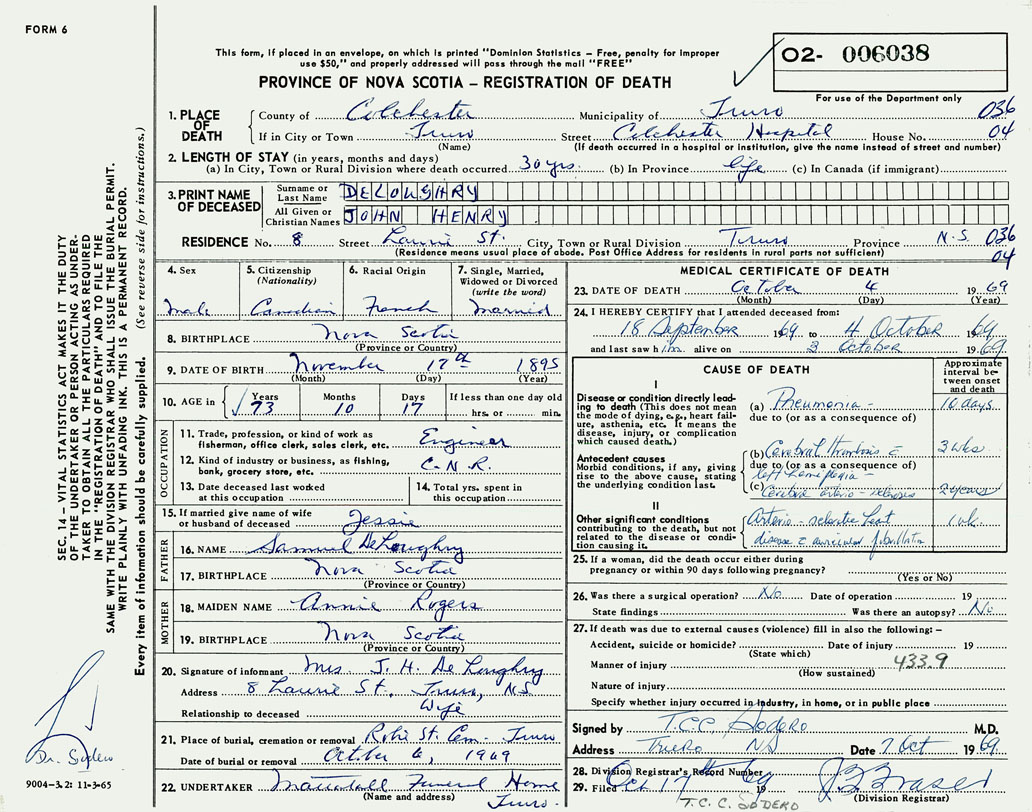 FORM 6
This form, if placed in an envelope, on which is printed "Dominion Statistics – Free, penalty for improper
use $50," and properly addressed will pass through the mail "FREE"
PROVINCE OF NOVA SCOTIA – REGISTRATION OF DEATH
02- 006038
For use of the Department only
1. PLACE OF DEATH County of Colchester Municipality of Truro 036
If in City or Town Truro Street Colchester Hospital House No. 04
(Name) (If death occurred in a hospital or institution, give the name instead of street and number)
2. LENGTH OF STAY (in years, months and days)
(a) In City, Town or Rural Division where death occurred 30 yrs. (b) In Province life (c) In Canada (if immigrant)
3. PRINT NAME OF DECEASED Surname or Last Name DELOUGHRY
All Given or Christian Names JOHN HENRY
RESIDENCE No. 8 Street Laurie St. City, Town or Rural Division Truro Province N.S. 036
(Residence means usual place of abode. Post Office Address for residents in rural parts not sufficient) 04
4. Sex 5. Citizenship (Nationality) 6. Racial Origin 7. Single, Married, Widowed or Divorced (write the word)
male Canadian French Married
8. BIRTHPLACE Nova Scotia
(Province or Country)
9. DATE OF BIRTH November 17th 1895
(Month) (Day) (Year)
10. AGE in Years Months Days If less than one day old
73 10 17 hrs. or min.
OCCUPATION
11. Trade, profession, or kind of work as fisherman, office clerk, sales clerk, etc. Engineer
12. Kind of industry or business, as fishing, bank, grocery store, etc. C.N.R.
13. Date deceased last worked at this occupation 14. Total yrs. spent in this occupation
15. If married give name of wife or husband of deceased Jessie
FATHER
16. NAME Samuel DeLoughry
17. BIRTHPLACE Nova Scotia
(Province or Country)
MOTHER
18. MAIDEN NAME Annie Rogers
19. BIRTHPLACE Nova Scotia
(Province or Country)
20. Signature of informant Mrs. J. H. De Loughry
Address 8 Laurie St., Truro, NS
Relationship to deceased Wife
21. Place of burial, cremation or removal Robie St. Cem. Truro
Date of burial or removal October 6, 1969
22. UNDERTAKER Mattatall Funeral Home
(Name and address) Truro.
MEDICAL CERTIFICATE OF DEATH
23. DATE OF DEATH October 4 1969
(Month) (Day) (Year)
24. I HEREBY CERTIFY that I attended deceased from:
18 September 1969 to 4 October 1969
and last saw him alive on 3 October 1969
CAUSE OF DEATH
Approximate interval between onset and death
I
Disease or condition directly leading to death (This does not mean the mode of dying, e.g., heart failure, asthenia, etc. It means the disease, injury, or complication which caused death.)
(a) Pneumonia - 10 days
due to (or as a consequence of)
Antecedent causes
Morbid conditions, if any, giving rise to the above cause, stating the underlying condition last.
(b) Cerebral thrombosis c 3 wks
due to (or as a consequence of)
left hemiplegia -
(c) Cerebral arterio-sclerosis 2 years
II
Other significant conditions contributing to the death, but not related to the disease or condition causing it.
Arterio-sclerotic heart 1 wk.
disease c auricular fibrillation
25. If a woman, did the death occur either during
pregnancy or within 90 days following pregnancy?
(Yes or No)
26. Was there a surgical operation? No Date of operation 19
State findings Was there an autopsy? No
27. If death was due to external causes (violence) fill in also the following: –
Accident, suicide or homicide? Date of injury 19
(State which)
Manner of injury 433.9
(How sustained)
Nature of injury
Specify whether injury occurred in industry, in home, or in public place
Signed by T.C.C. Sodero M.D.
Address Truro NS Date 7 Oct 1969
28. Division Registrar's Record Number
29. Filed Oct 17 1969 J B Fraser
(Division Registrar)
T.C.C. SODERO
SEC. 14 – VITAL STATISTICS ACT MAKES IT THE DUTY
OF THE UNDERTAKER OR PERSON ACTING AS UNDER-
TAKER TO OBTAIN ALL THE PARTICULARS REQUIRED
IN THE "REGISTRATION OF DEATH" AND TO FILE THE
SAME WITH THE DIVISION REGISTRAR WHO SHALL ISSUE THE BURIAL PERMIT.
WRITE PLAINLY WITH UNFADING INK. THIS IS A PERMANENT RECORD.
Every item of information should be carefully supplied. (See reverse side for instructions.)
Dr. Sodero
9004-3.2: 11-3-65